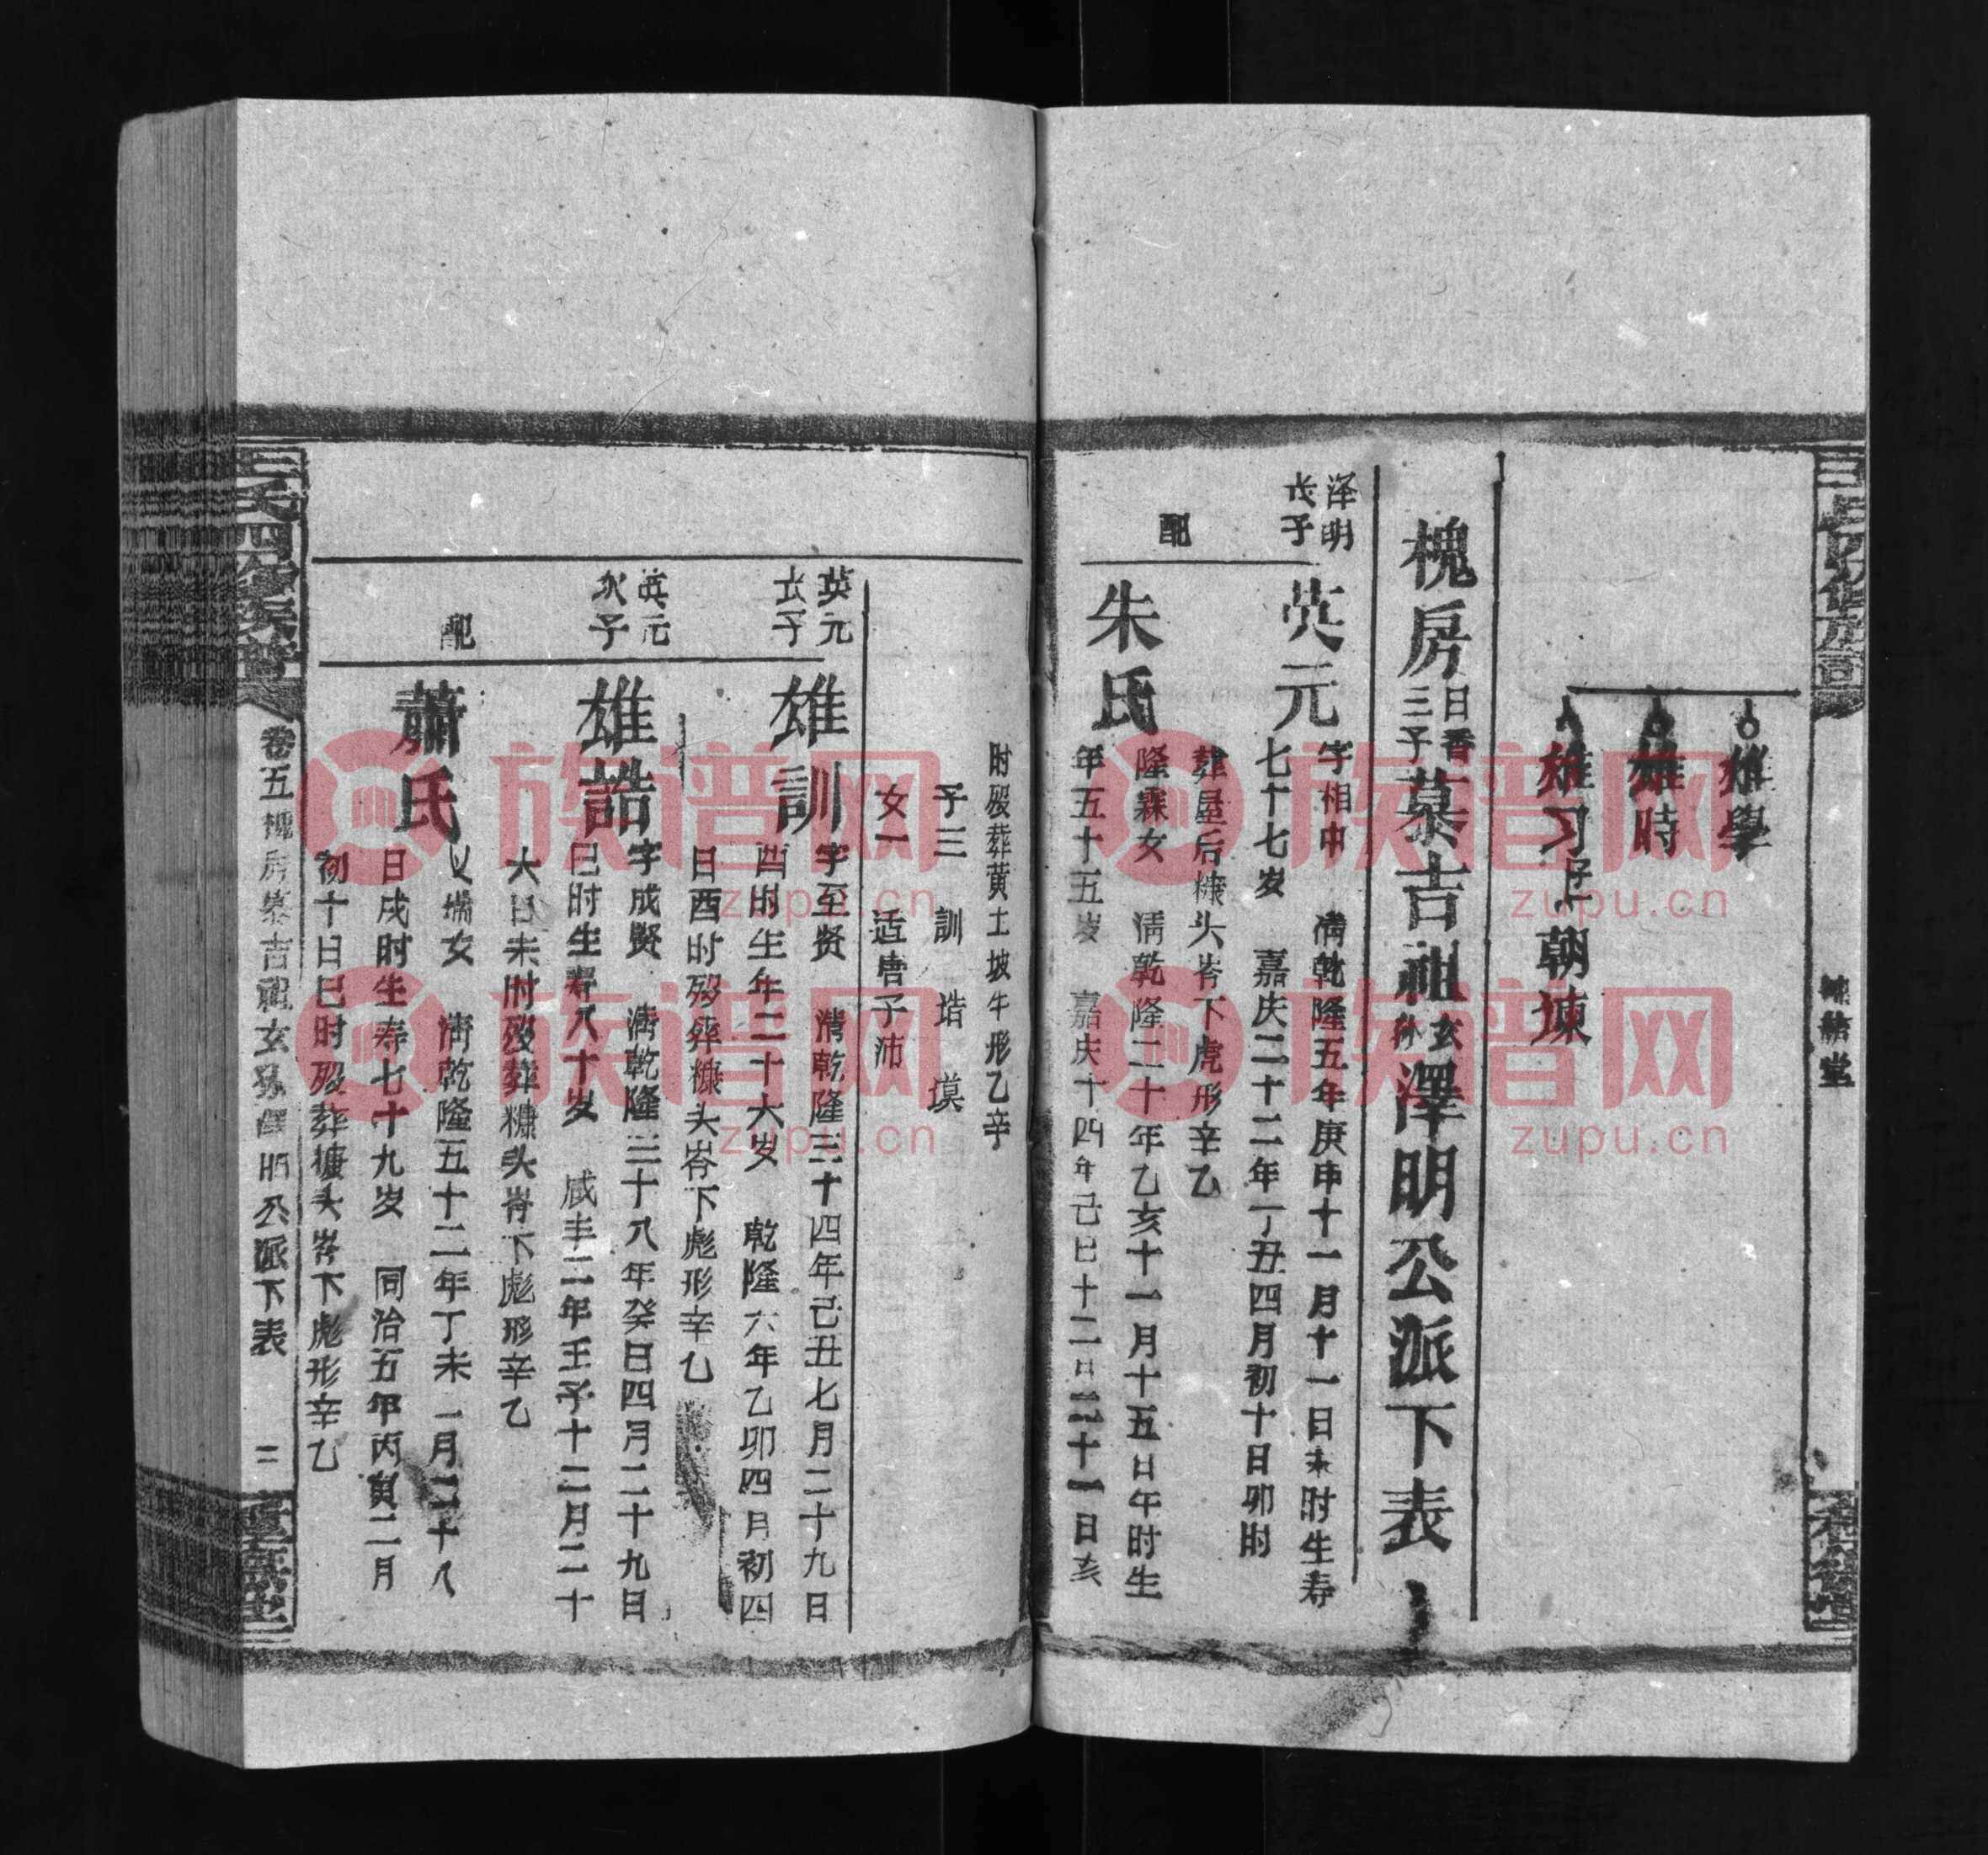 雄學
雄時
雄习 子上 朝墉
槐房 日香三子 慕吉祖 玄孙 澤明公派下表
泽明
长子
英元
字相中 清乾隆五年庚申十一月十一日未时生寿
七十七岁 嘉庆二十二年丁丑四月初十日卯时
葬屋后糠头岺下虎形辛乙
配
朱氏
隆霖女 清乾隆二十年乙亥十一月十五日午时生
年五十五岁 嘉庆十四年己巳十二日二十一日亥
时殁葬黄土坡牛形乙辛
子三 訓 诰 谟
女一 适唐子沛
英元
长子
雄訓
字至贤 清乾隆三十四年己丑七月二十九日
酉时生年二十六岁 乾隆六年乙卯四月初四
日酉时殁葬糠头岺下彪形辛乙
英元
次子
雄誥
字成賢 清乾隆三十八年癸巳四月二十九日
巳时生寿八十岁 咸丰二年壬子十二月二十
六日未时殁葬糠头岺下彪形辛乙
配
蕭氏
义瑞女 清乾隆五十二年丁未一月二十八
日戌时生寿七十九岁 同治五年丙寅二月
初十日巳时殁葬糠头岺下彪形辛乙
王氏四修族譜
卷五 槐房慕吉祖玄孙泽明公派下表
三
族谱网
zupu.cn
族谱网
zupu.cn
族谱网
zupu.cn
族谱网
zupu.cn